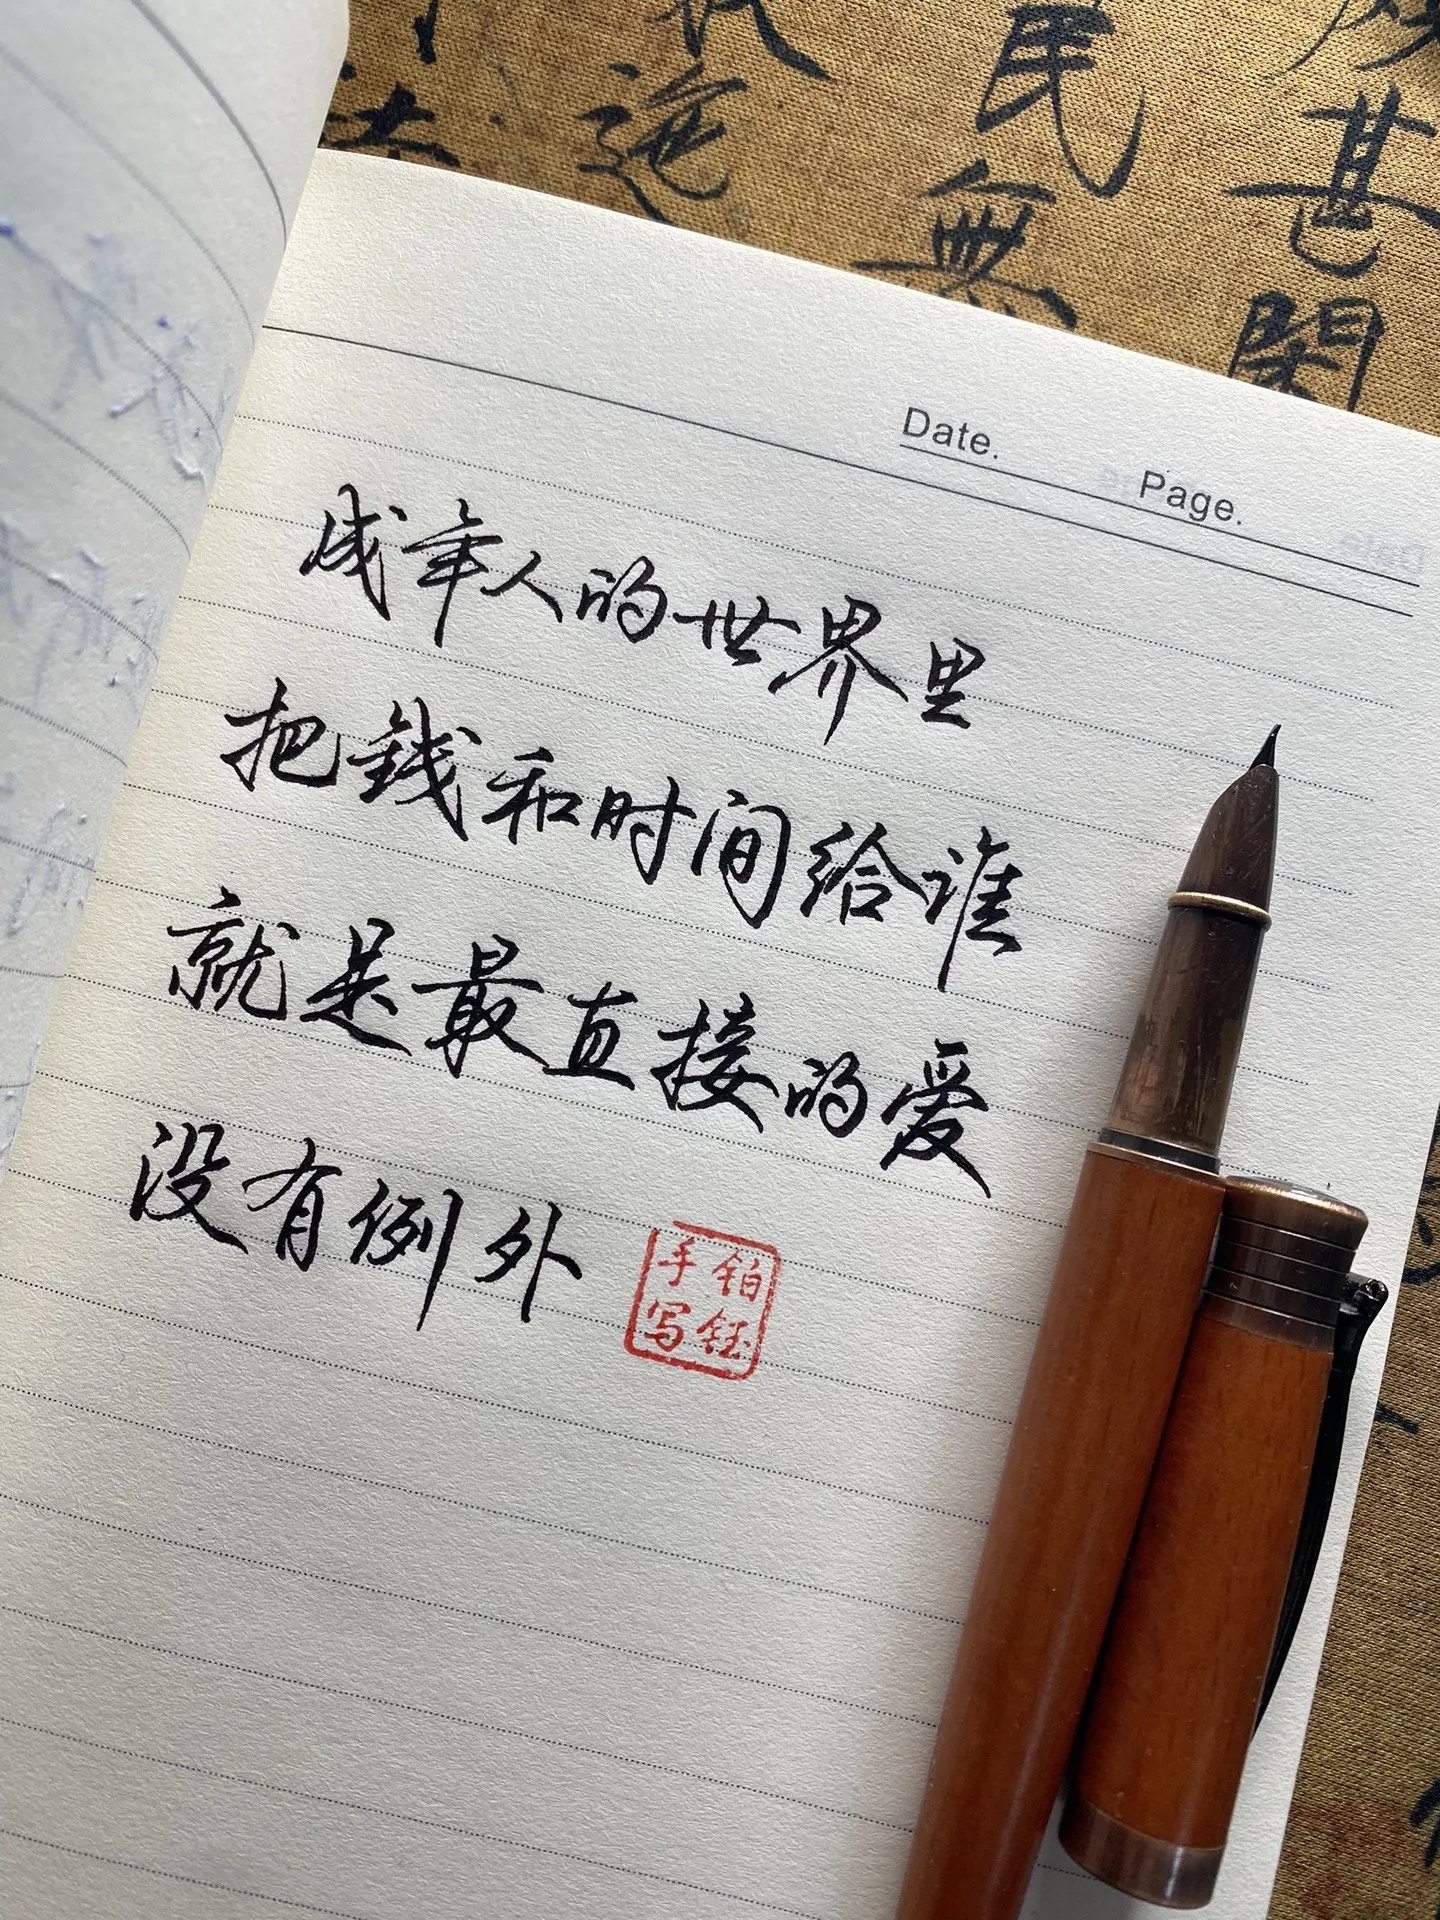 民
無
甚
閑
Date.
Page.
成年人的世界里
把錢和时间给谁
就是最直接的爱
没有例外
铂钰
手写